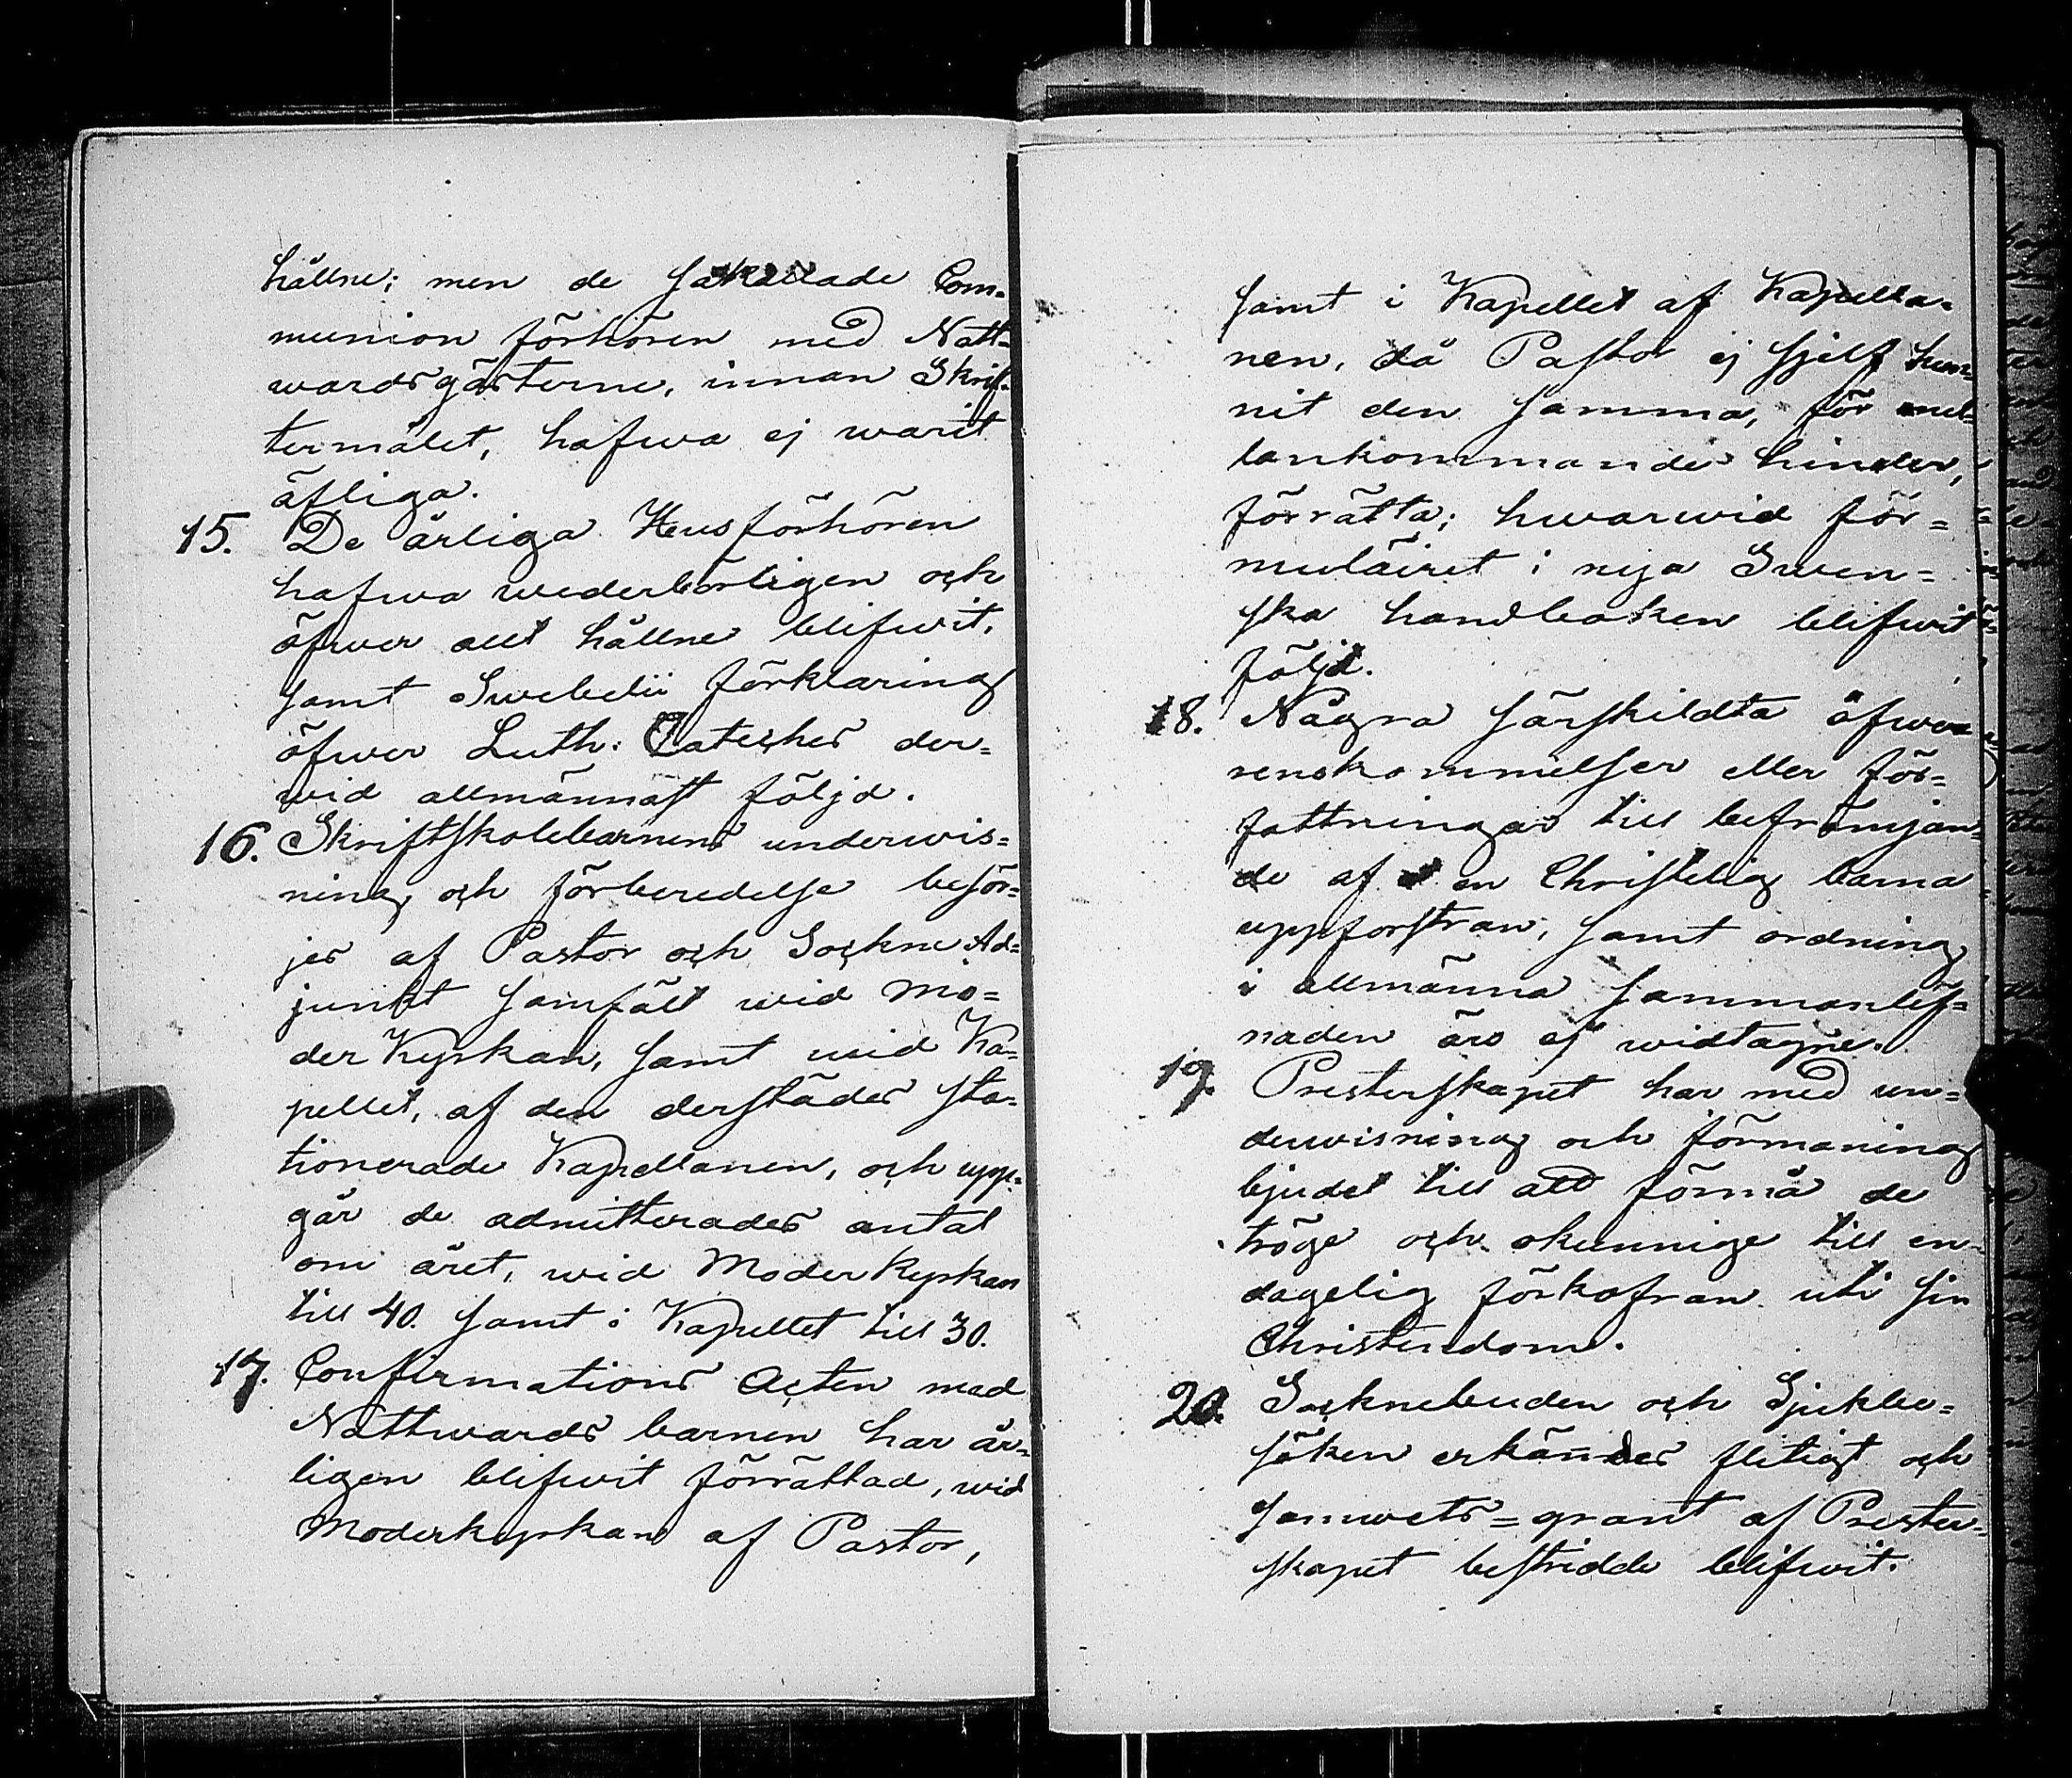 hållne; men de såkallade Com-
munion förhören med Natt-
wardsgästerne, innan Skrif-
termålet, hafwa ej warit
öfliga.
15. De årliga Husförhören
hafwa wederbörligen och
öfwer allt hållne blifwit,
samt Swebelii förklaring
öfwer Luth: Cateches der-
wid allmännast följd.
16. Skriftskolebarnens underwis-
ning och förberedelse besör-
jes af Pastor och Sockne Ad-
junkt samfält wid Mo-
der Kyrkan, samt wid Ka-
pellet, af den derstädes sta-
tionerade Kapellanen, och upp-
går de admitterades antal
om året, wid Moder Kyrkan
till 40. samt i Kapellet till 30.
17. Confirmations Acten med
Nattwards barnen har år-
ligen blifwit förrättad, wid
Moderkyrkan af Pastor,
samt i Kapellet af Kapella-
nen, då Pastor ej sjelf hun-
nit den samma, för mel-
lankommande hinder,
förrätta; hwarwid for-
muläiret i nya Swen-
ska handboken blifwit
följd.
18. Några särskildta öfwe
renskommelser eller för-
fattningar till befrämjan-
de af en Christelig barna
uppfostran, samt ordning
i allmänna sammanlef-
naden äro ej widtagne.
19. Presterskapet har med un-
derwisning och förmaning
bjudet till att förmå de
tröge och okunnige till en
dagelig förkofran uti sin
Christendom.
20. Socknebuden och Sjukbe-
söken erkändes flitigt och
samwets-grant af Prester-
skapet bestridde blifwit.